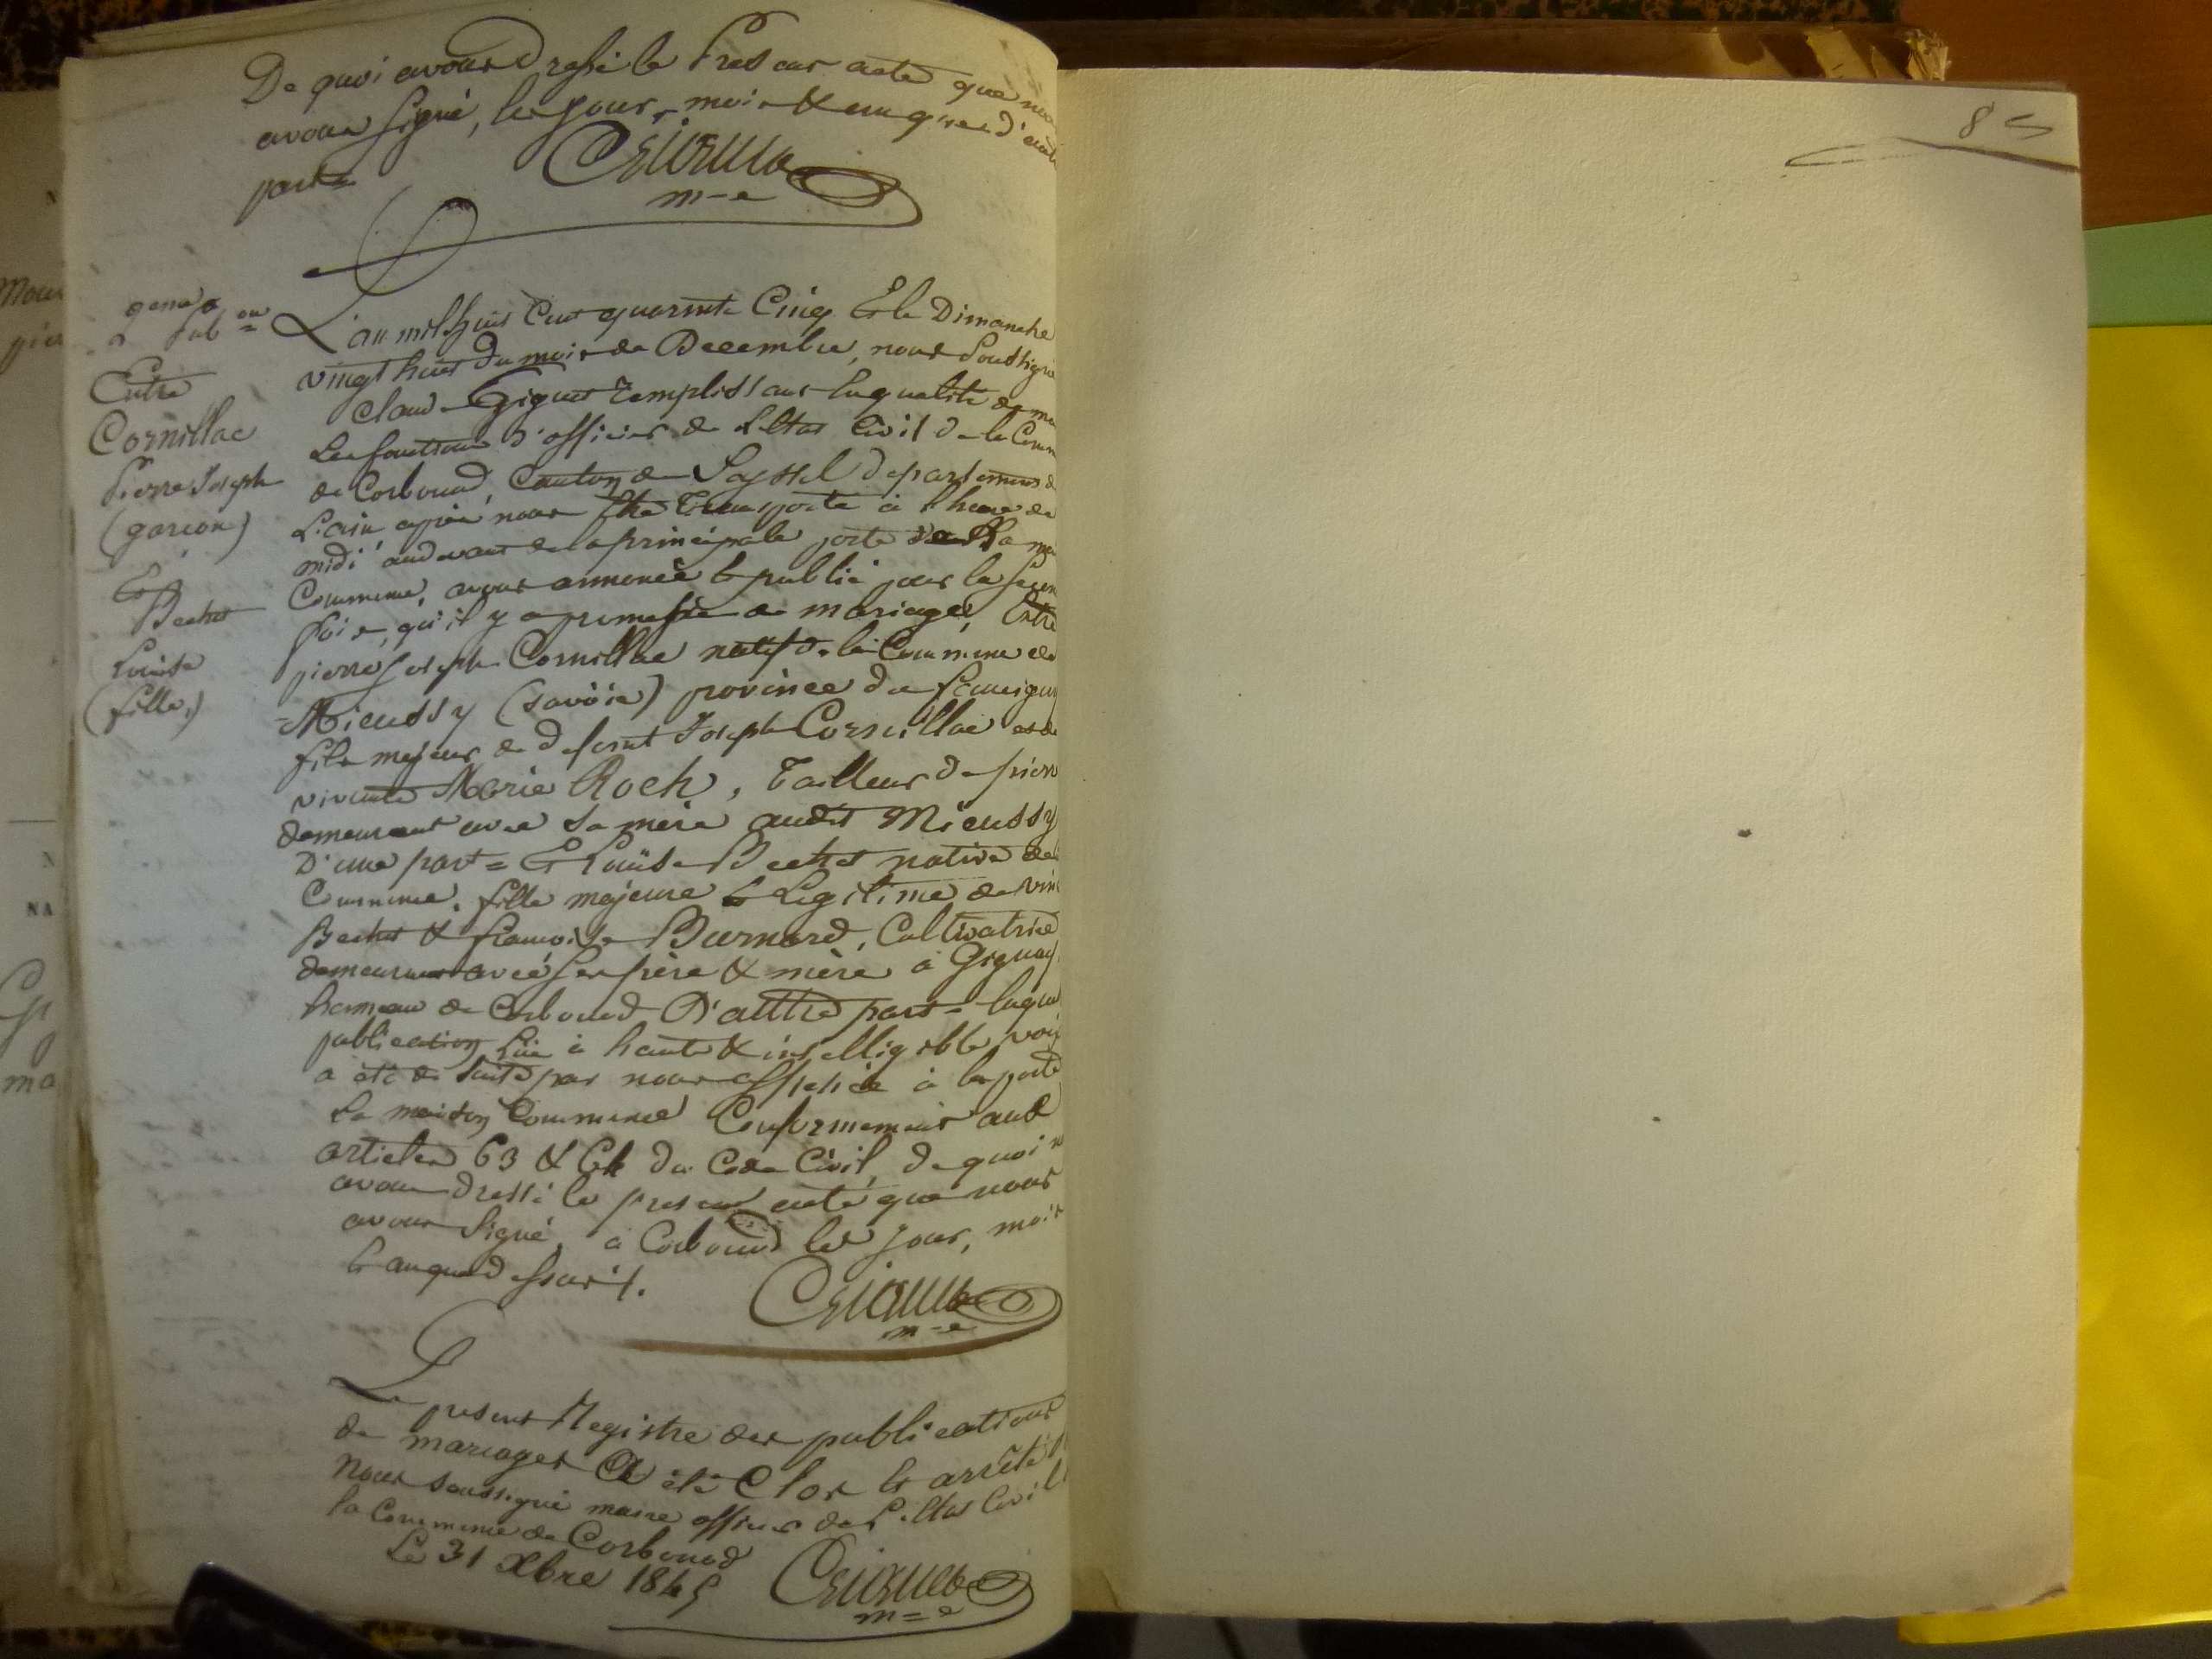 De quoi avons dressé le Present acte que nous
avons signé, les jour, mois & an que d'autre
part =
m-e
2 pub on
Entre
Cornillac
Pierre Joseph
(garcon)
Et
Bechet
Louise
(fille.)
L'an mil huit Cent quarante Cinq Et le Dimanche
vingt huit du mois de Decembre, nous Soussigné
Claude Giguet remplissant la qualité de m
Les fonctions d'officier de L'Etat Civil de la Comm
de Corbonod, Canton de Seyssel departement de
L'ain, après nous être transporté à l'heure de
midi audevant de la principale porte de la m
Commune, avons annoncé & publié pour la Secon
fois, qu'il y a promesse de mariage, Entre
pierre Joseph Cornillac natif de la Commune de
Mieussy (savoie) province du faucigny
fils majeur de defunt Joseph Cornillac et de
vivante Marie Roch, Tailleur de pierre
demeurant avec sa mère audit Mieussy
D'une part = Et Louise Bechet native de
Commune, fille majeure & legitime de vin
Bechet & françoise Burnard, Cultivatrice
demeurant avec ses père & mère à Gignay
hameau de Corbonod D'autre part = laqu
publication lue à haute & intelligible voix
a été de suite par nous affichée à la porte
La maison Commune Conformement aux
articles 63 & 64 du Code Civil, de quoi n
avons dressé le present acte que nous
avons signé, à Corbonod les jour, mois
& an que dessus.
m-e
Le present Registre des publications
de mariages a été Clos & arrêté p
Nous soussigné maire officier de L'Etat Civil
la Commune de Corbonod
Le 31 Xbre 1845
m=e
85
Mou
pier
NA
ma